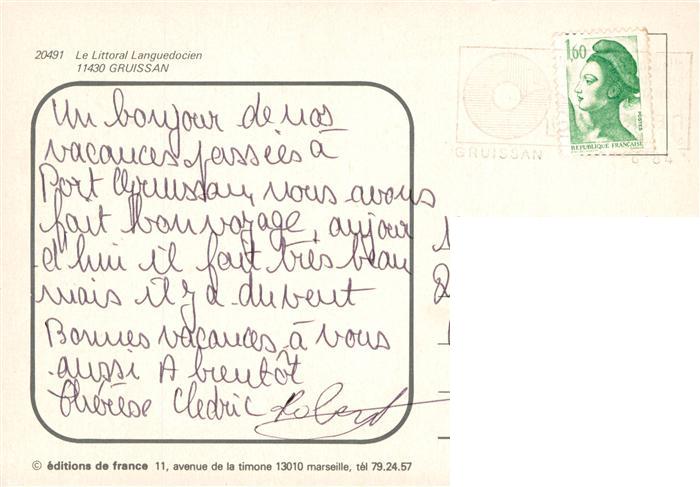 20491 Le Littoral Languedocien
11430 GRUISSAN
Un bonjour de nos
vacances passées à
Port Gruissan, nous avons
fait bon voyage, aujour
d'hui il fait très beau
mais il y a du vent
Bonnes vacances à vous
aussi A bientôt
Thérèse Cledric Robert
1,60
POSTES
REPUBLIQUE FRANÇAISE
GRUISSAN
6 84
© éditions de france 11, avenue de la timone 13010 marseille, tél 79.24.57